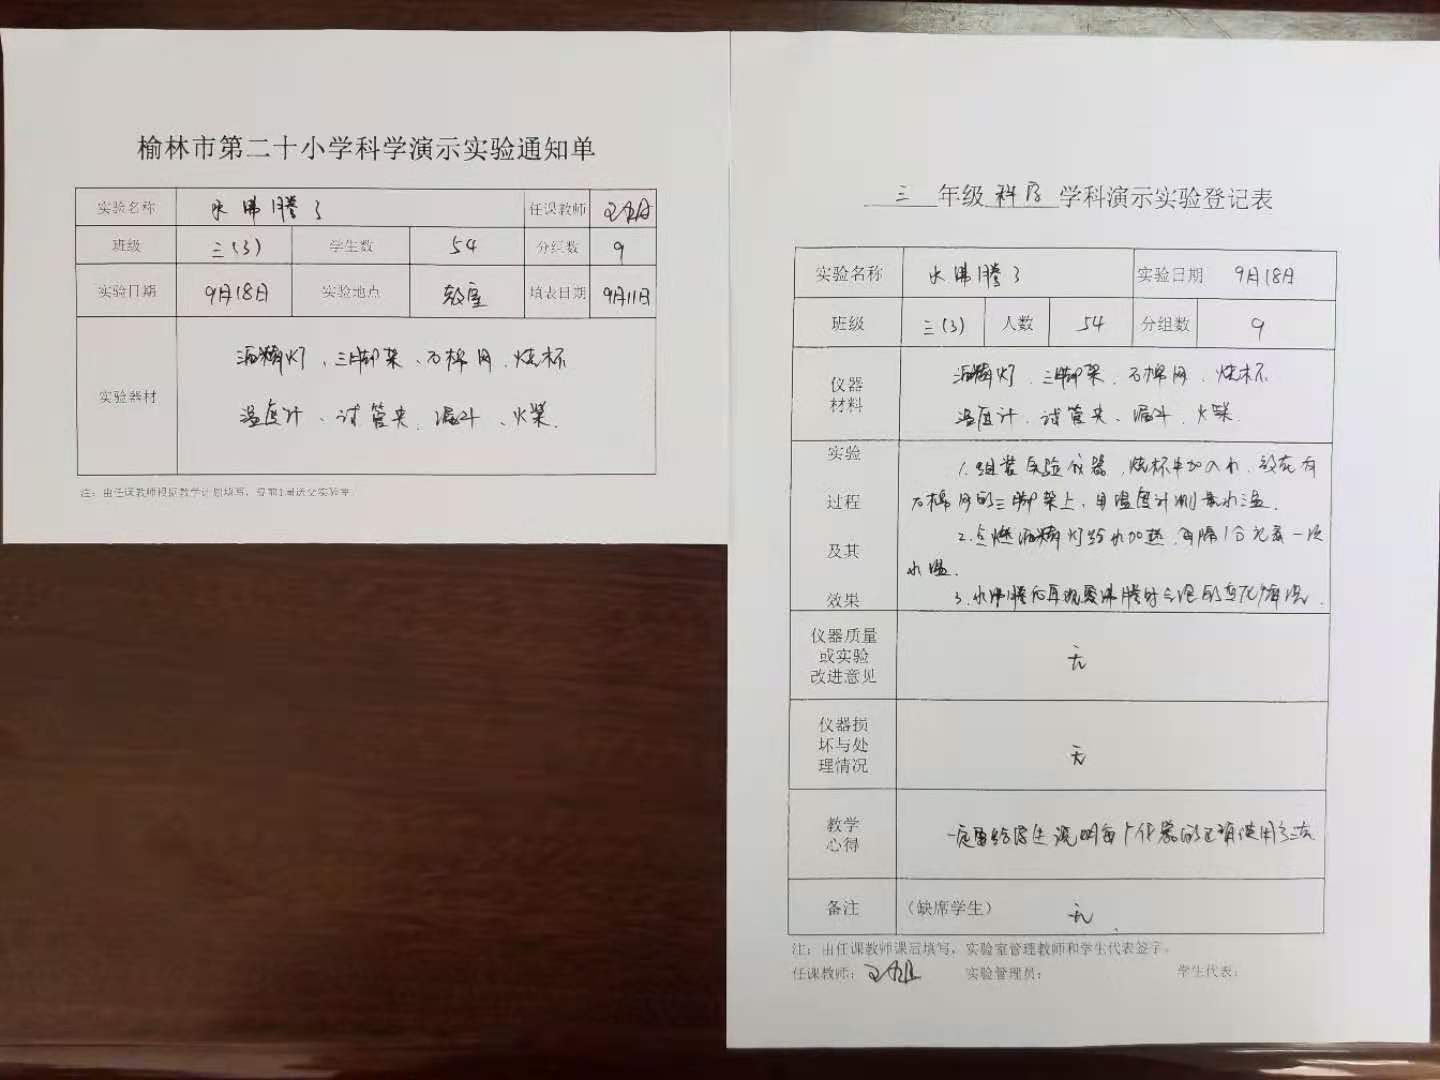 榆林市第二十小学科学演示实验通知单
实验名称 水沸腾了 任课教师
班级 三(3) 学生数 54 分组数 9
实验日期 9月18日 实验地点 教室 填表日期 9月11日
实验器材
酒精灯、三脚架、石棉网、烧杯
温度计、试管夹、漏斗、火柴.
注：由任课教师根据教学计划填写，提前1周送交实验室。
三 年级 科学 学科演示实验登记表
实验名称 水沸腾了 实验日期 9月18日
班级 三(3) 人数 54 分组数 9
仪器
材料
酒精灯、三脚架、石棉网、烧杯
温度计、试管夹、漏斗、火柴.
实验
过程
及其
效果
1.组装实验仪器,烧杯中加入水,放在有
石棉网的三脚架上,用温度计测量水温.
2.点燃酒精灯给水加热,每隔1分记录一次
水温.
3.水沸腾后再观察沸腾时的变化情况.
仪器质量
或实验
改进意见
无
仪器损
坏与处
理情况
无
教学
心得
一定要给学生说明每个仪器的正确使用方法
备注 (缺席学生) 无
注：由任课教师课后填写，实验室管理教师和学生代表签字。
任课教师： 实验管理员： 学生代表：